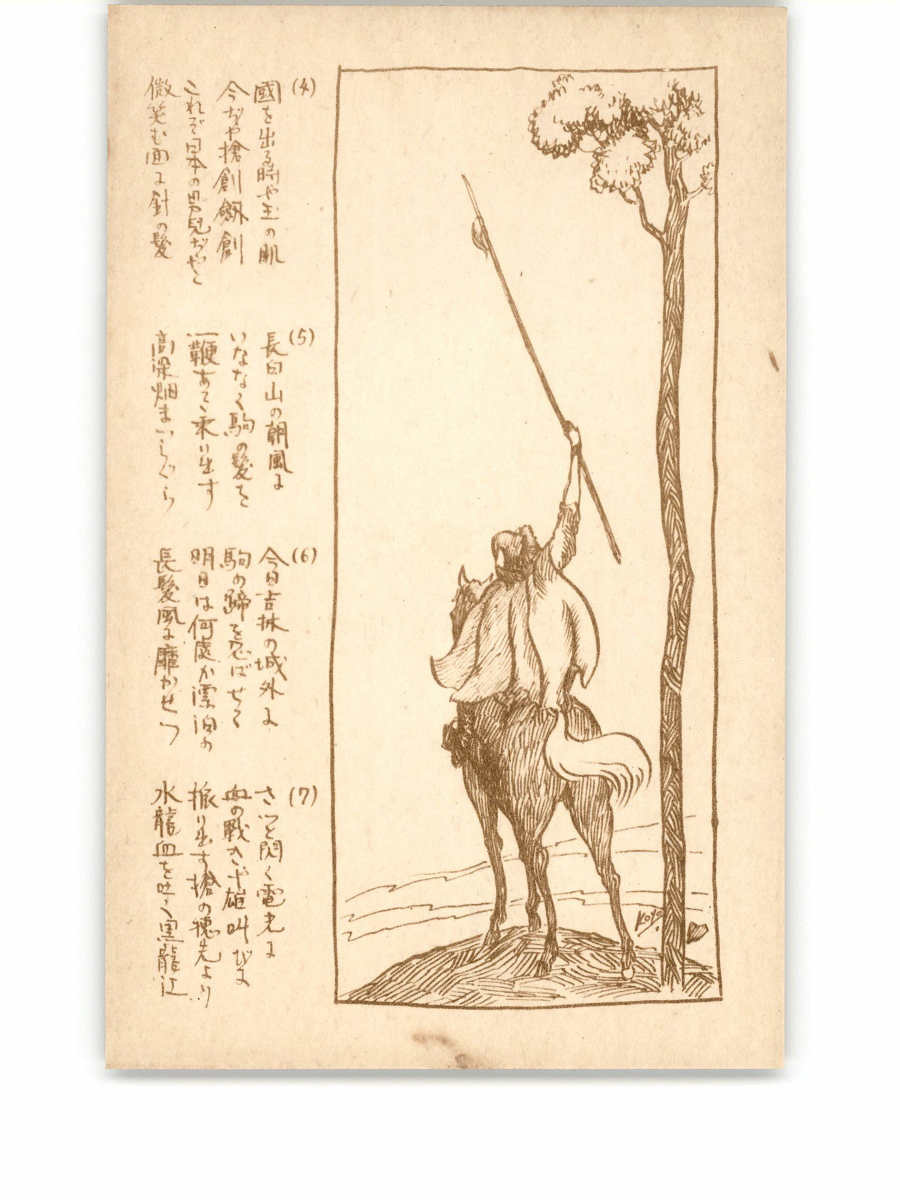 (4)
國を出る時や玉の肌
今ぢや搶創劔創
これぞ日本の男兒ぢやと
微笑む面に針の髪
(5)
長白山の朝風に
いななく駒の髪を
一鞭あてゝ乘り出す
高梁畑まっしぐら
(6)
今日吉林の城外に
駒の蹄を忍ばせる
明日は何處か漂泊の
長髪風に靡かせつ
(7)
さっと閃く電光に
血の戰きぞ雄叫びに
振り出す搶の穂先より
水龍血を吐く黒龍江
Koyo